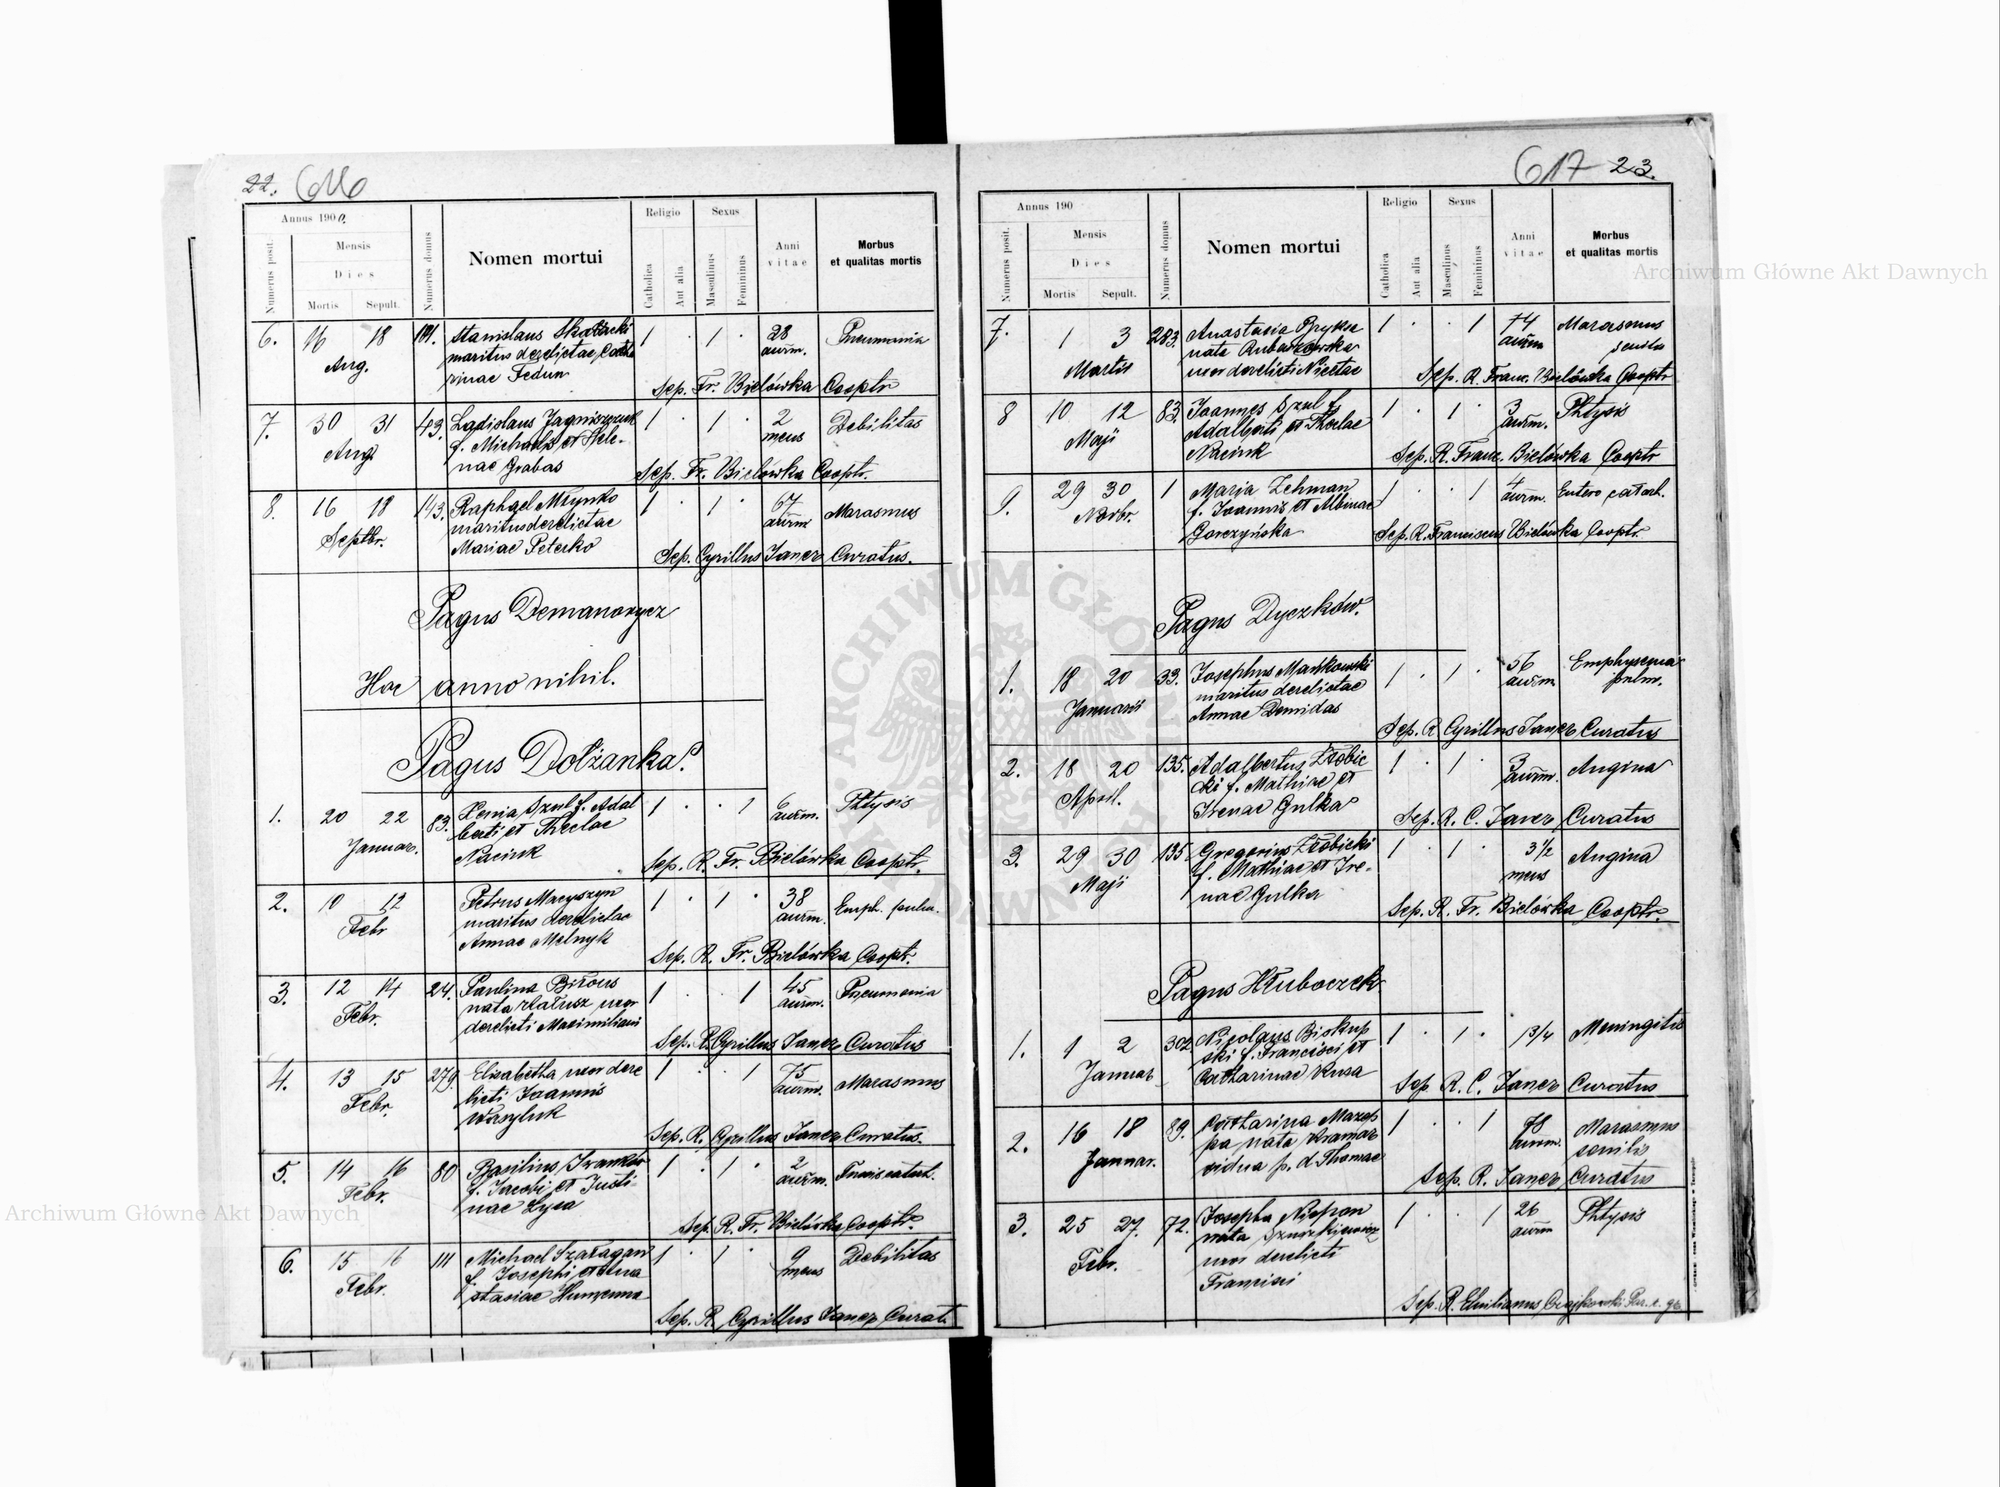 22. 616
Annus 1900.
Numerus posit.
Mensis
Dies
Mortis Sepult.
Numerus domus
Nomen mortui
Religio
Catholica
Aut alia
Sexus
Masculinus
Femininus
Anni
vitae
Morbus
et qualitas mortis
6. 16 18 191. Stanislaus 1 . 1 . 28 Pneumonia
Aug. maritus derelictae annor.
rinae Fedun
Sep. Fr. Bielówka Cooptr
7. 30 31 43. Ladislaus 1 . 1 . 2 Debilitas
Aug. f. Michaelis et Hele- mens
nae Grabas
Sep. Fr. Bielówka Cooptr.
8. 16 18 143. Raphael Młynko 1 . 1 67 Marasmus
Septbr. maritus derelictae annor
Mariae Peterko
Sep. Cyrillus Janer Curatus.
Pagus Demamorycz
Hoc anno nihil.
Pagus Dołżanka.
1. 20 22 83. Xenia Szul f. Adal 1 . . 1 6 Phtysis
Januar. berti et Theclae annor.
Naciuk
Sep. R. Fr. Bielówka Cooptr.
2. 10 12 Petrus 1 . 1 . 38 Emph. pulm.
Febr maritus derelictae annor.
Annae Melnyk
Sep. R. Fr. Bielówka Cooptr.
3. 12 14 24. Paulina 1 . . 1 45 Pneumonia
Febr. nata uxor annor.
derelicti Maximiliani
Sep. R. Cyrillus Janer Curatus
4. 13 15 279. Elisabetha uxor dere 1 . . 1 75 Marasmus
Febr. licti Joannis annor.
Wasyluk
Sep. R. Cyrillus Janer Curatus.
5. 14 16 80 Basilius 1 . 1 . 2
Febr. f. Jacobi et Justi- annor.
nae
Sep. R. Fr. Bielówka Cooptr.
6. 15 16 111 Michael Szaragan 1 . 1 . 9 Debilitas
Febr. f. Josephi et Ana mens
stasiae Humenna
Sep. R. Cyrillus Janer Curat.
617 23.
Annus 190
Numerus posit.
Mensis
Dies
Mortis Sepult.
Numerus domus
Nomen mortui
Religio
Catholica
Aut alia
Sexus
Masculinus
Femininus
Anni
vitae
Morbus
et qualitas mortis
7. 1 3 283. Anastasia Bryksa 1 . . 1 74 Marasmus
Martii nata annor senilis
uxor derelicti Nicetae
Sep. R. Franc. Bielówka Cooptr
8 10 12 83. Joannes Szul f. 1 . 1 . 3 Phtysis
Maji Adalberti et Theclae annor.
Naciuk
Sep. R. Franc. Bielówka Cooptr
9. 29 30 1 Maria Lehman 1 . . 1 4 Entero catarh.
Novbr. f. Joannis et Albinae annor.
Gorczyńska
Sep. R. Franciscus Bielówka Cooptr.
Pagus Dyczków.
1. 18 20 33. Josephus Mańkowski 1 . 1 . 56 Emphysema
Januarii maritus derelictae annor. pulm.
Annae Demidas
Sep. R Cyrillus Janer Curatus
2. 18 20 135. Adalbertus Złobic 1 . 1 . 3 Angina
April. ki f. Mathiae et annor.
Irenae Gulka
Sep. R. C. Janer Curatus
3. 29 30 135 Gregorius Złobicki 1 . 1 . 3 1/2 Angina
Maji f. Mathiae et Ire- mens
nae Gulka
Sep. R. Fr. Bielówka Cooptr.
Pagus Hłuboczek
1. 1 2 302 Nicolaus Biskup 1 . 1 . 13/4 Meningitis
Januar. ski f. Francisci et
Catharinae Kusa
Sep R. C. Janer Curatus
2. 16 18 89. Catharina Mazep 1 . . 1 78 Marasmus
Januar. pa nata Kramar annor. senilis
vidua p. d Thomae
Sep. R. Janer Curatus
3. 25 27. 72. Josepha Niepon 1 . . 1 26 Phtysis
Febr. nata annor
uxor derelicti
Francisci
Sep. R. Emilianus Czajkowski
Archiwum Główne Akt Dawnych
Archiwum Główne Akt Dawnych
ARCHIWUM GŁÓWNE AKT DAWNYCH